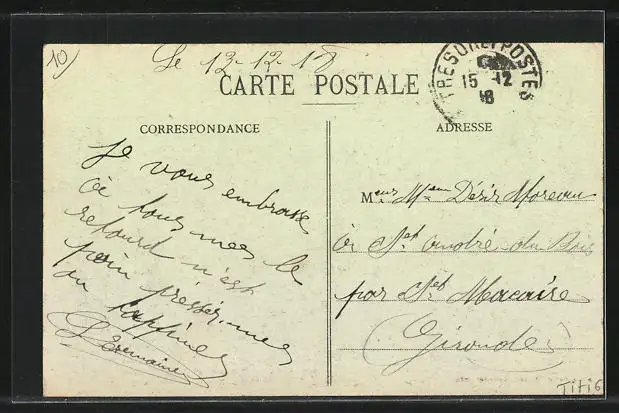 10
Le 13-12-18
CARTE POSTALE
TRESOR ET POSTES
15 -12
18
CORRESPONDANCE
ADRESSE
Je vous embrasse
à tous mes le
retourd n'est
pain pressér
on
M eur M am Désir Moreau
à St andré du Bois
par St Macaire
(Gironde)
Titi6